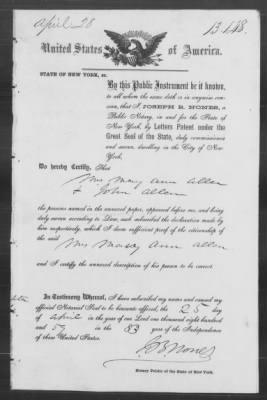 April 28
13.148.
United States of America.
STATE OF NEW YORK, ss.
By this Public Instrument be it known,
to all whom the same doth or may in anywise con-
cern, that I, JOSEPH B. NONES, a
Public Notary, in and for the State of
New York, by Letters Patent under the
Great Seal of the State, duly commissioned
and sworn, dwelling in the City of New
York,
Do hereby Certify, That
Mrs Mary Ann Allen
& John Allen
the persons named in the annexed paper, appeared before me, and being
duly sworn according to Law, each subscribed the declaration made by
him respectively, which I deem sufficient proof of the citizenship of
the said
Mrs Mary Ann Allen
and I certify the annexed description of his person to be correct.
In Testimony Whereof, I have subscribed my name and caused my
official Notarial Seal to be hereunto affixed, the 25 day
of April in the year of our Lord one thousand eight hundred
and 59 in the 83 year of the Independence
of these United States.
J B Nones
Notary Public of the State of New York.